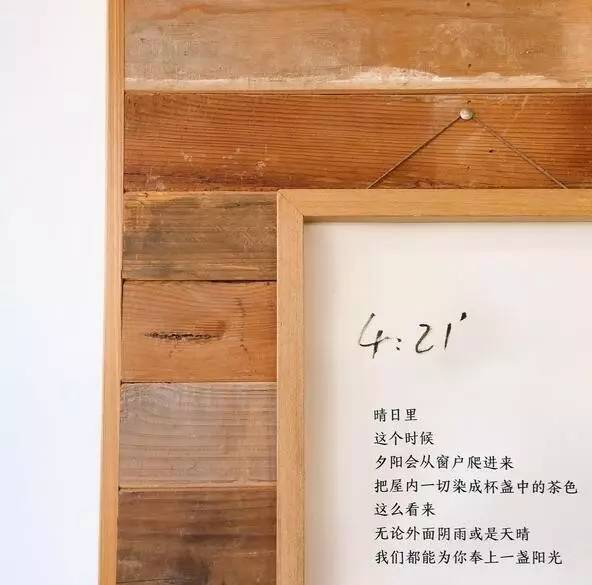 4:21'
晴日里
这个时候
夕阳会从窗户爬进来
把屋内一切染成杯盏中的茶色
这么看来
无论外面阴雨或是天晴
我们都能为你奉上一盏阳光